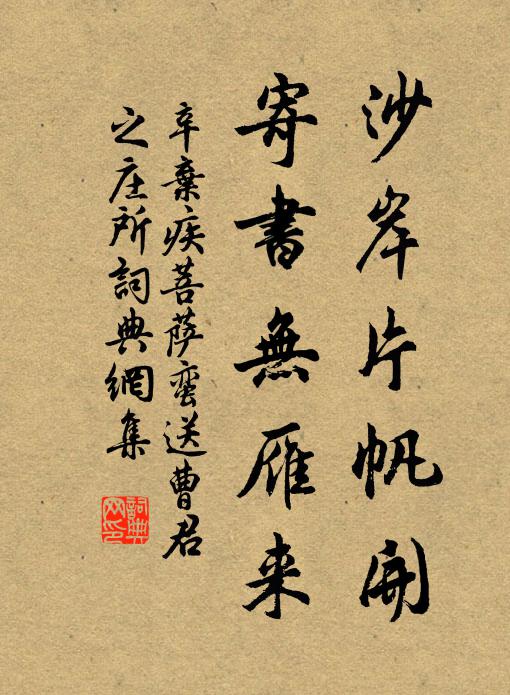 沙岸片帆開
寄書無雁来
辛棄疾菩薩蛮送曹君
之庄所詞典網集
詞典网印